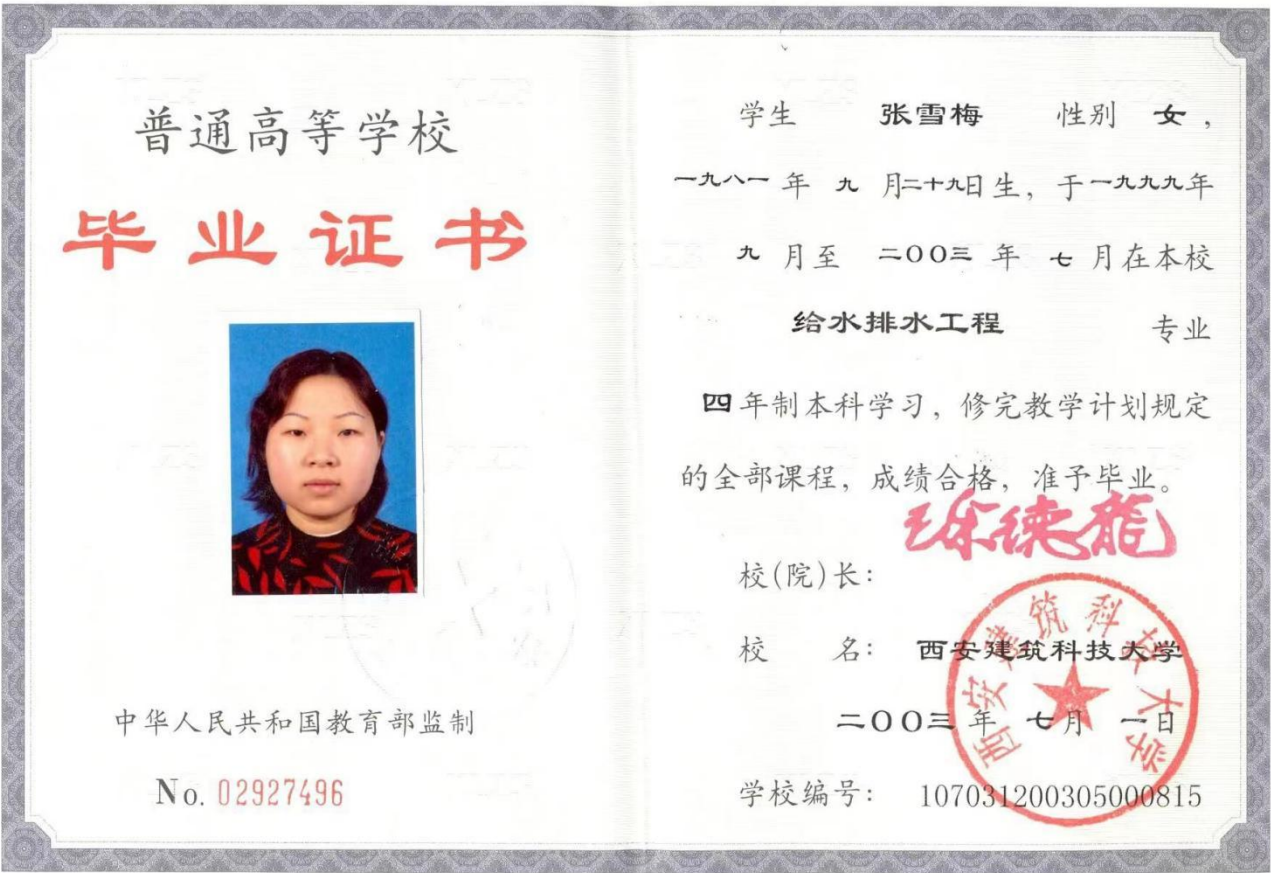 普通高等学校
毕业证书
中华人民共和国教育部监制
No. 02927496
学生 张雪梅 性别 女，
一九八一 年 九 月二十九日生，于一九九九年
九 月至 二〇〇三 年 七 月在本校
给水排水工程 专业
四年制本科学习，修完教学计划规定
的全部课程，成绩合格，准予毕业。
校(院)长：徐德龙
校 名：西安建筑科技大学
西安建筑科技大学
二〇〇三 年 七月 一日
学校编号：107031200305000815